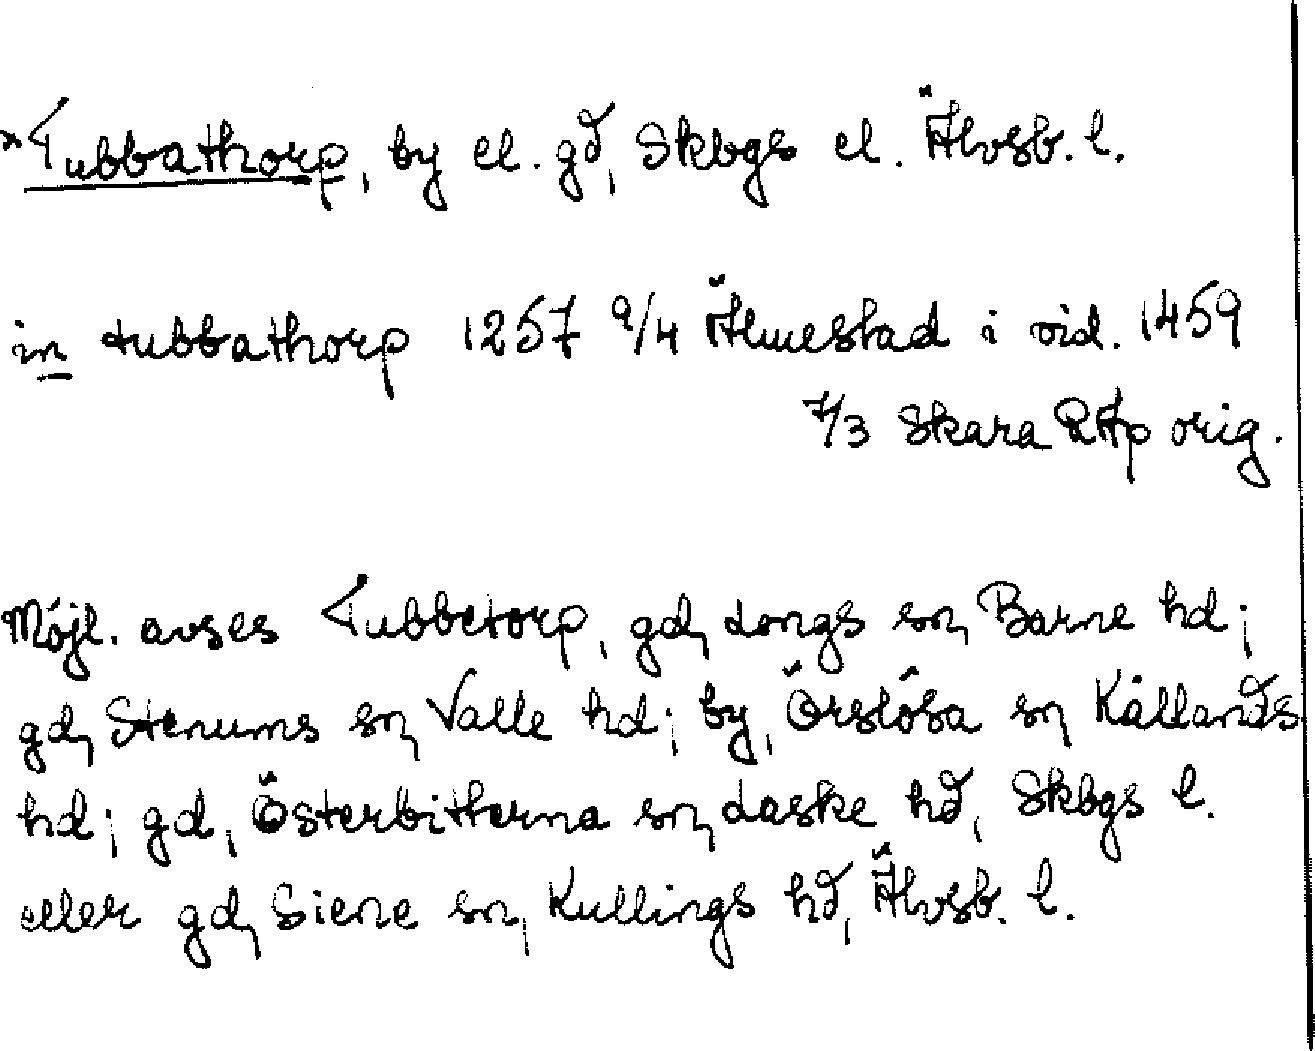 *Tubbathorp, by el. gd, Skbgs el. Älvsb. l.
in tubbathorp 1257 9/4 Älmestad i vid. 1459
7/3 Skara RAp orig.
Möjl. avses Tubbetorp, gd, Longs sn, Barne hd;
gd, Stenums sn, Valle hd; by, Örslösa sn, Kållands
hd; gd, Österbitterna sn, Laske hd, Skbgs l.
eller gd, Siene sn, Kullings hd, Älvsb. l.